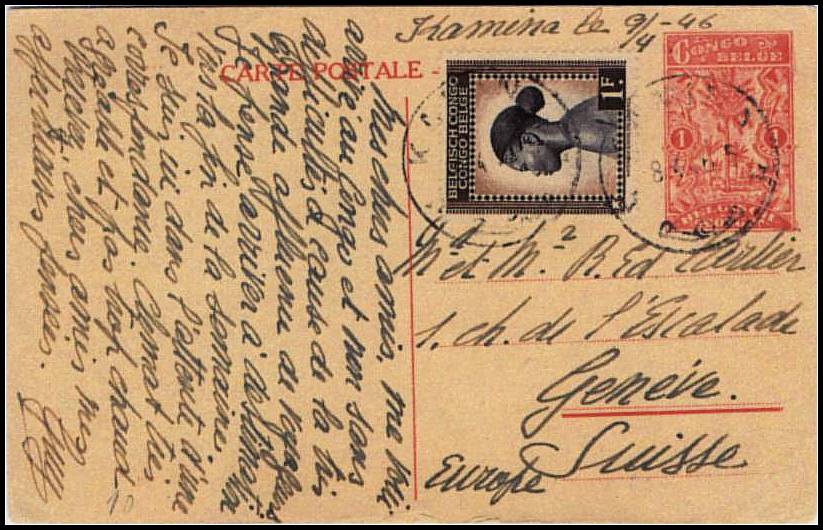 Kamina le 9/4-46
CARTE POSTALE -
CONGO
BELGE
1
BELGISCH CONGO
CONGO BELGE
1F.
Mes chers amis, me voici
arrivé au Congo et non sans
difficultés à cause de la très
grande affluence de voyageurs
Je pense arriver à destination
vers la fin de la semaine.
Je suis ici dans l'attente d'une
correspondance. Climat très
agréable et pas trop chaud
Recevez, chers amis mes
affectueuses pensées. Guy
Mr et Me R. Ed.
1. ch. de l'Escalade
Genève.
Suisse
Europe
10